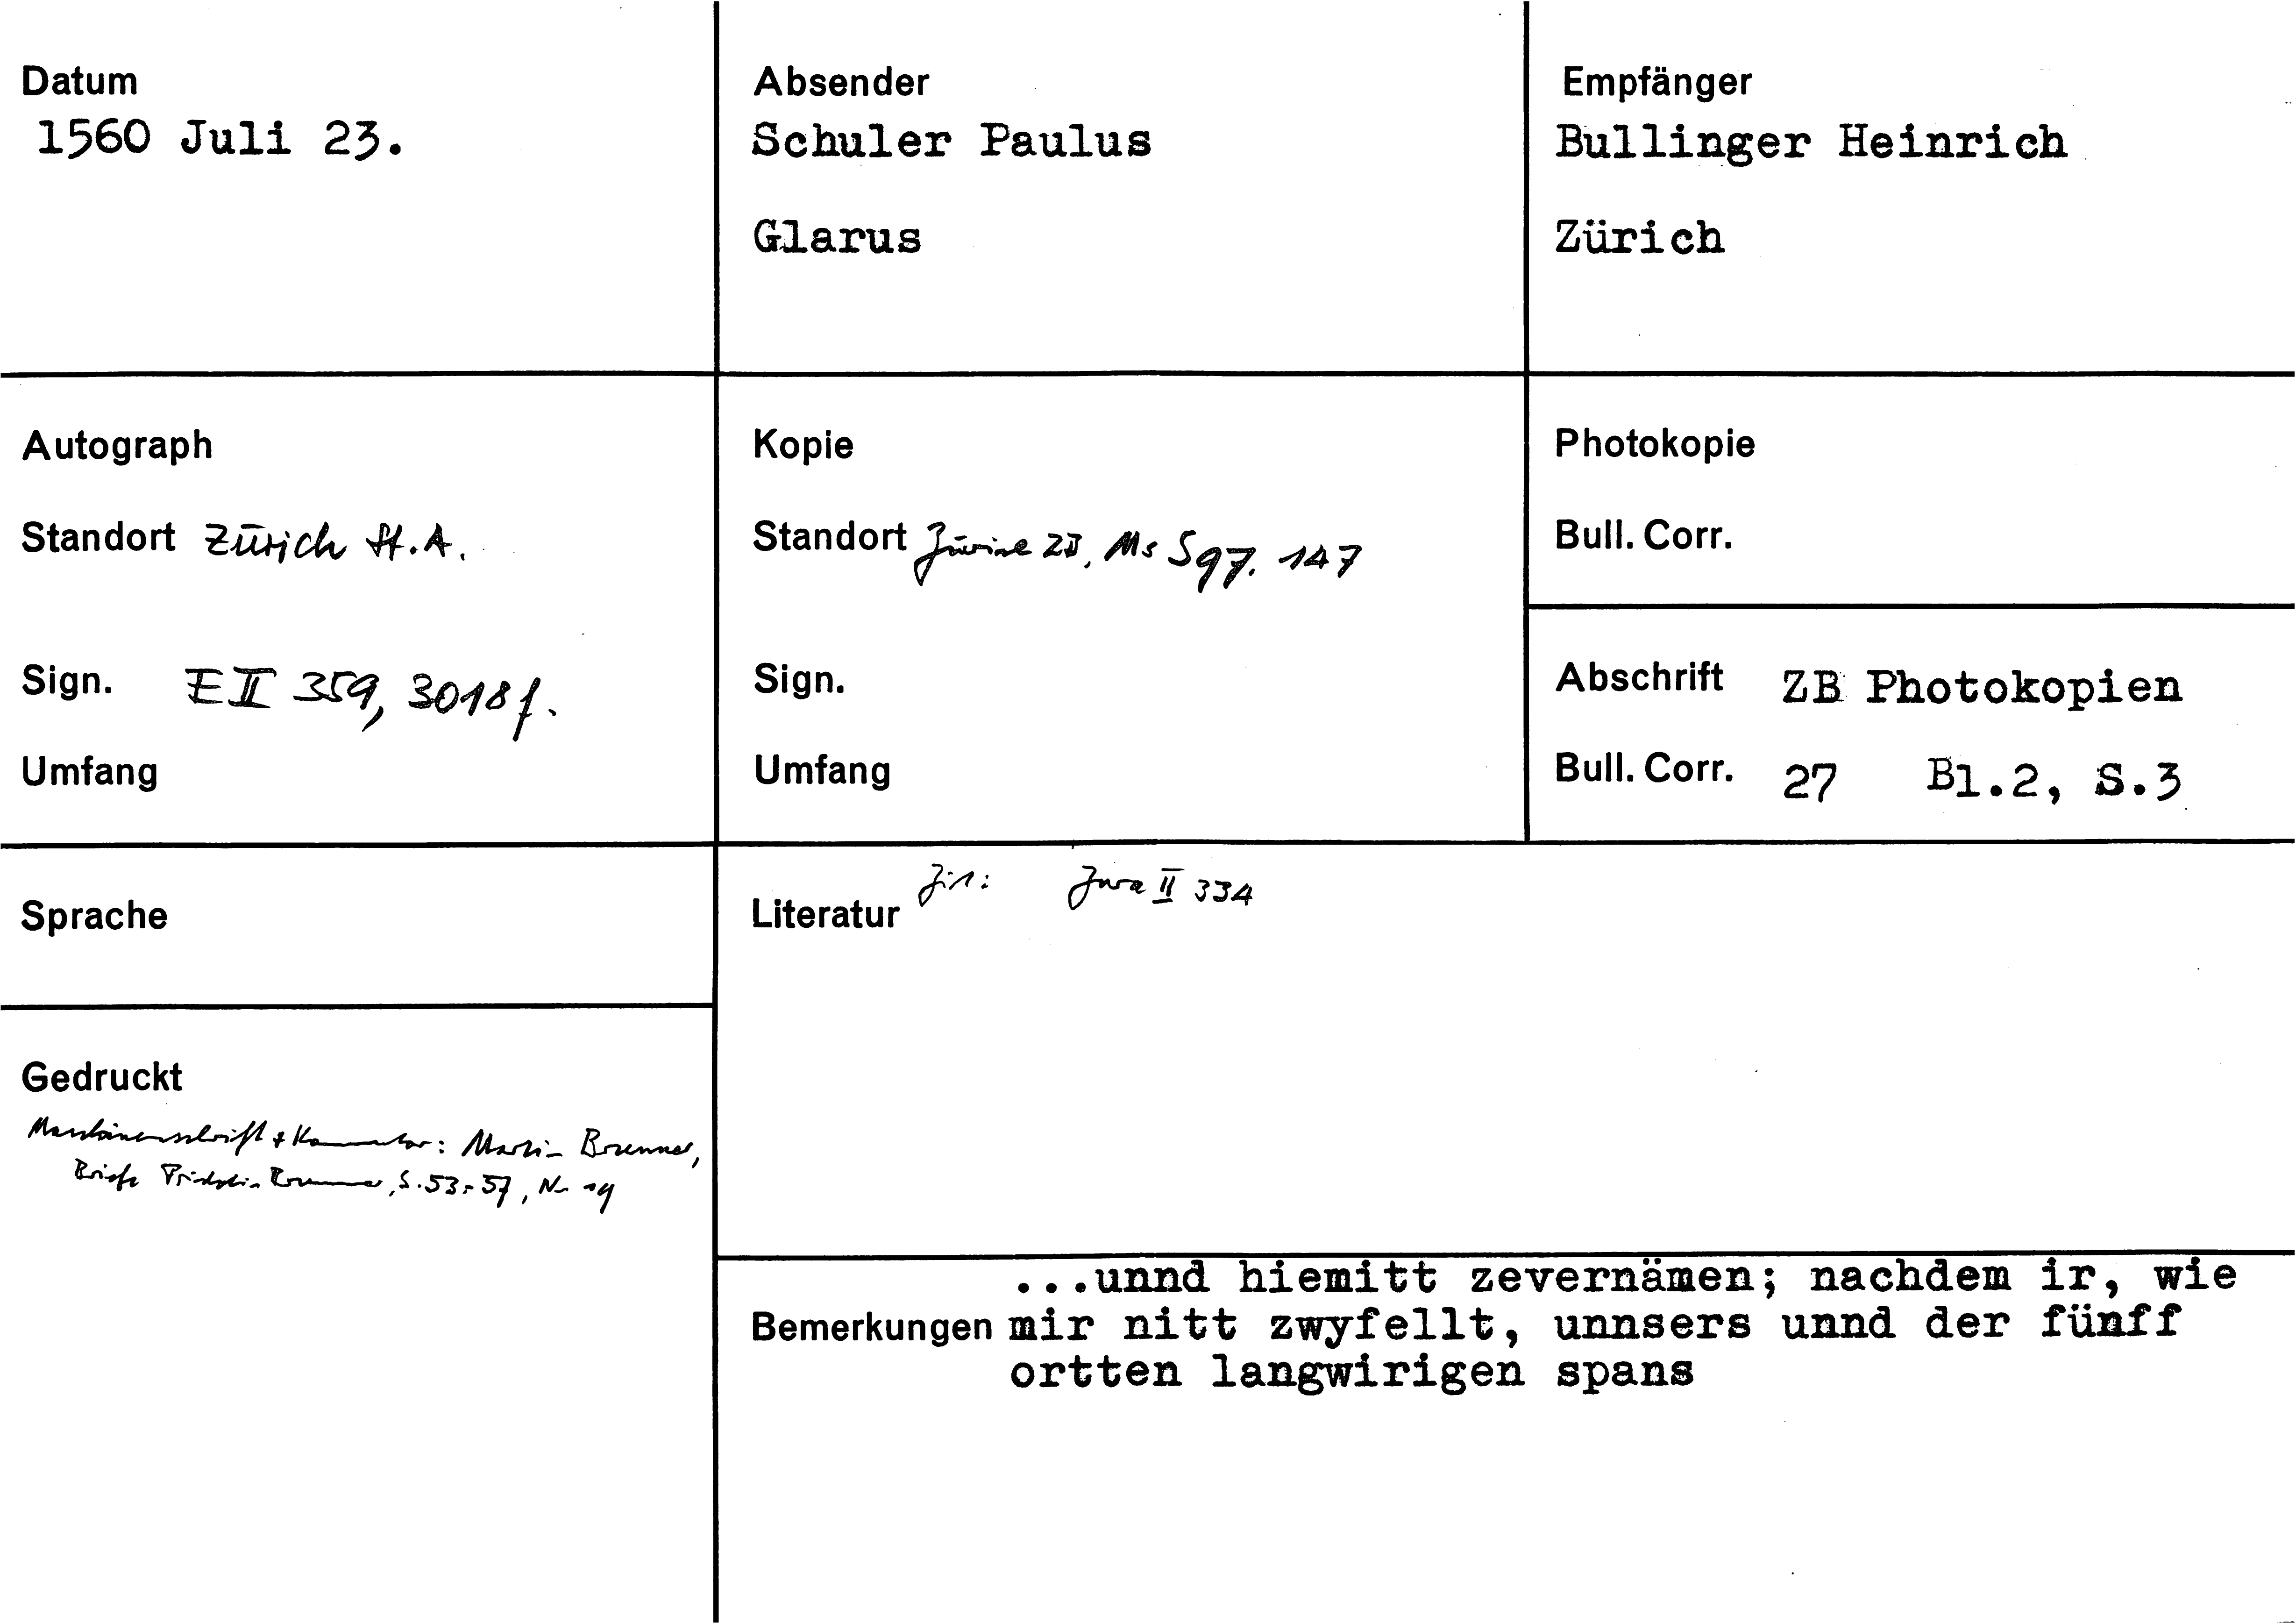 Datum
1560 Juli 23.
Absender
Schuler Paulus
Glarus
Empfänger
Bullinger Heinrich
Zürich
Autograph
Standort Zürich St.A.
Sign. E II 359, 3018f.
Umfang
Kopie
Standort Zürich ZB, Ms S 97. 147
Sign.
Umfang
Photokopie
Bull. Corr.
Abschrift ZB Photokopien
Bull. Corr. 27 Bl.2, S.3
Sprache
Gedruckt
Maschinenschrift + Kommentar: Martin Brunner,
Briefe Fridolin Brunner, S. 53-57, Nr 19
Literatur Zit: II 334
Bemerkungen
...unnd hiemitt zevernämen; nachdem ir, wie
mir nitt zwyfellt, unnsers unnd der fünff
ortten langwirigen spans